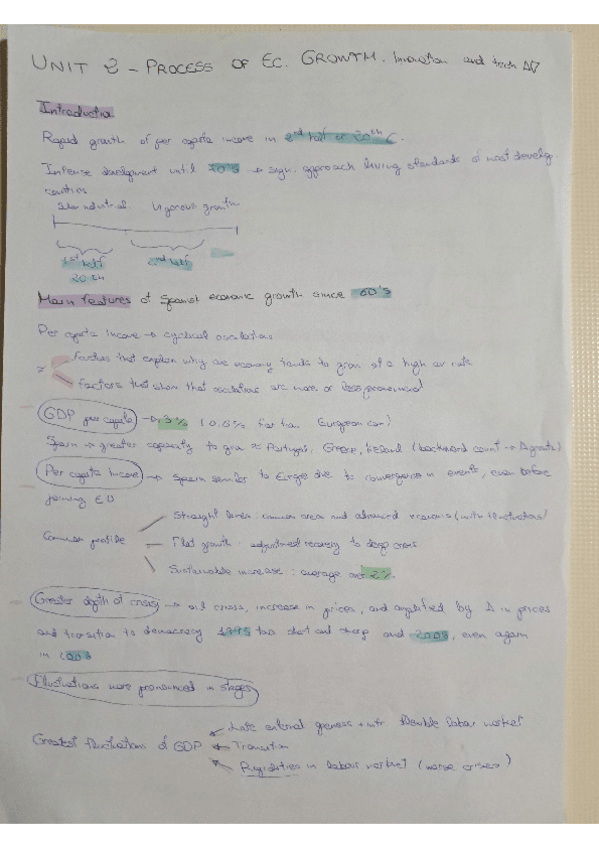 UNIT 2 - PROCESS OF EC. GROWTH. Innovation and tech
Introduction
Rapid growth of per capita income in 2nd half of 20th C.
Intense development until 70's → sign. approach living standards of most develop.
countries
industrial Vigorous growth
1st half 2nd half
20th
Main features of Spanish economic growth since 60's
Per capita income → cyclical oscillations
2 Factors that explain why an economy tends to grow at a high av rate
Factors that show that oscillations are more or less pronounced
GDP per capita → 3% (0.6% European)
Spain → greater capacity to grow Portugal, Greece, Ireland (backward count →)
Per capita Income → Spain similar to Europe due to convergence in events, even before
joining EU
Common profile
Straight lines: common area and advanced economies (with fluctuations)
Flat growth: adjustment recovery to deep crises
Sustainable increase: average 2%.
Greater depth of crisis → oil crisis, increase in prices, and amplified by Δ in prices
and transition to democracy 1975 too short and sharp and 2008, even again
in
Fluctuations more pronounced in stages
Greatest fluctuations of GDP
Late external openness + intr. flexible labor market
Transition
Rigidities in labour market (worse crises)